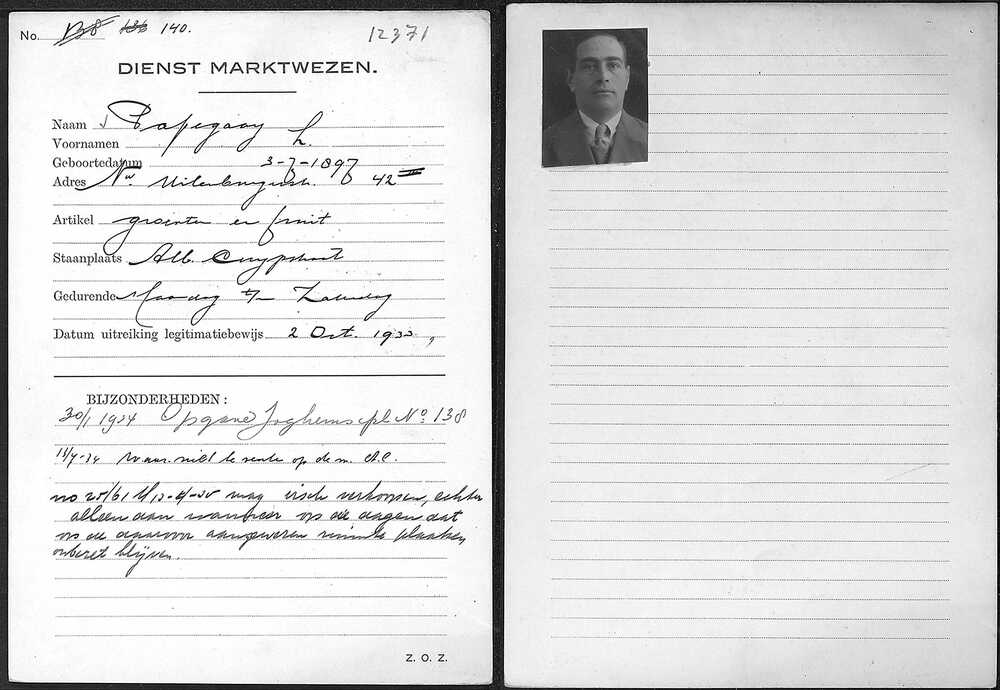 No. 138 136 140. 12371
DIENST MARKTWEZEN.
Naam Papegaay
Voornamen L.
Geboortedatum 3-7-1897
Adres Nw. Uilenburgerstr. 42 III
Artikel groenten en fruit
Staanplaats Alb. Cuypstraat
Gedurende Maandag t/m Zaterdag
Datum uitreiking legitimatiebewijs 2 Oct. 1933
BIJZONDERHEDEN:
30/1 1934 Opgave Joghems pl No. 138
niet te op de m. A.C.
no 25/61 mag visch verkoopen, echter
alleen dan wanneer op de dagen dat
op de daarvoor aangewezen plaatsen
onbezet blijven.
Z. O. Z.